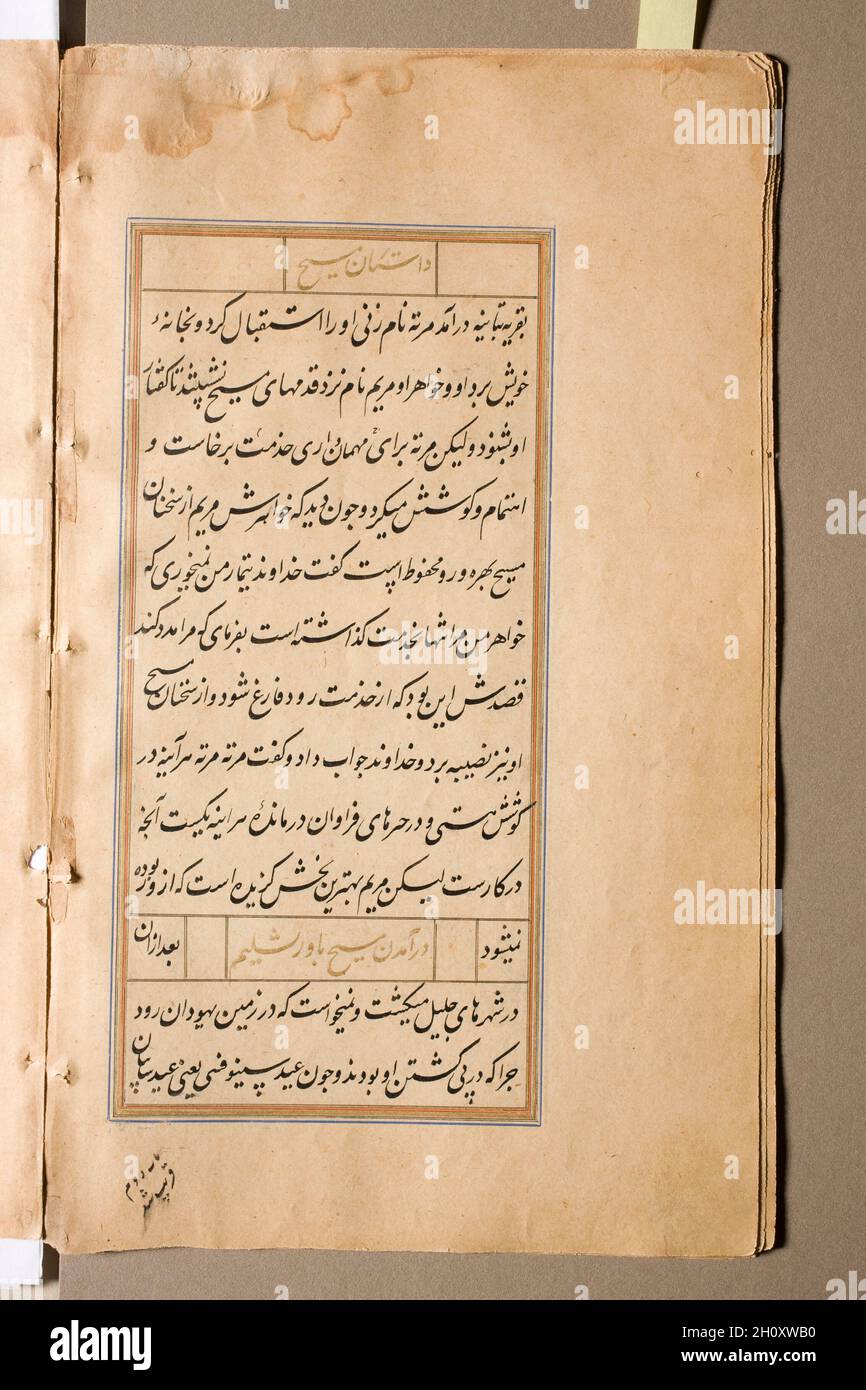 داستان مسیح
بقریه بتانیه درآمد مرته نام زنی او را استقبال کرد و بخانهٔ
خویش برد او و خواهر او مریم نام نزد قدمهای مسیح نشستند تا گفتار
او بشنود و لیکن مرته برای مهمانداری خدمت برخاست و
اهتمام و کوشش میکرد و چون دید که خواهرش مریم از سخنان
مسیح بهره ور و محفوظ است گفت خداوند تیمار من نمیخوری که
خواهر من مرا تنها بخدمت گذاشته است بفرمای که مرا مدد کند
قصدش این بود که از خدمت زود فارغ شود و از سخنان مسیح
او نیز نصیبه برد و خداوند جواب داد و گفت مرته مرته هرآینه در
کوشش هستی و در چیزهای فراوان درمانده هرآینه یکیست آنچه
درکارست لیکن مریم بهترین بخش گزیده است که ازو ربوده
نمیشود درآمدن مسیح باورشلیم بعد ازان
در شهرهای جلیل میگشت و نمیخواست که در زمین یهودان رود
چرا که در پی کشتن او بودند و چون عید سینوفنی یعنی عید
alamy
alamy
Image ID: 2H0XWB0
www.alamy.com